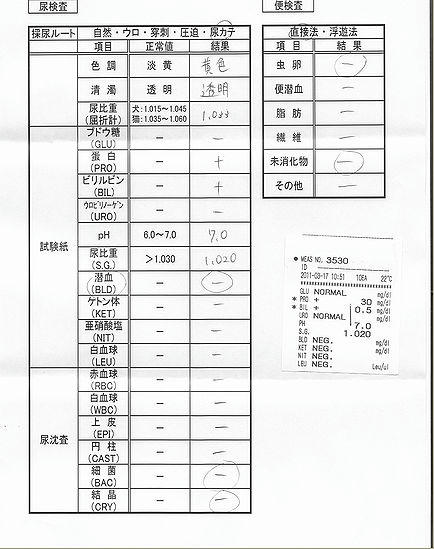 尿検査
採尿ルート 自然・ウロ・穿刺・圧迫・尿カテ
項目 正常値 結果
色調 淡黄 黄色
清濁 透明 透明
尿比重 (屈折計) 犬:1.015~1.045 猫:1.035~1.060 1.033
試験紙
ブドウ糖 (GLU) － －
蛋白 (PRO) － +
ビリルビン (BIL) － +
ウロビリノーゲン (URO) － －
pH 6.0~7.0 7.0
尿比重 (S.G.) >1.030 1.020
潜血 (BLD) － －
ケトン体 (KET) － －
亜硝酸塩 (NIT) － －
白血球 (LEU) － －
尿沈査
赤血球 (RBC) － －
白血球 (WBC) － －
上皮 (EPI) － －
円柱 (CAST) － －
細菌 (BAC) － －
結晶 (CRY) － －
便検査
直接法・浮遊法
項目 結果
虫卵 －
便潜血 －
脂肪 －
繊維 －
未消化物 －
その他 －
MEAS NO. 3530
ID
2011-03-17 10:51 10EA 22℃
GLU NORMAL mg/dl
* PRO + 30 mg/dl
* BIL + 0.5 mg/dl
URO NORMAL mg/dl
PH 7.0
S.G. 1.020
BLD NEG. mg/dl
KET NEG. mg/dl
NIT NEG.
LEU NEG. Leu/ul